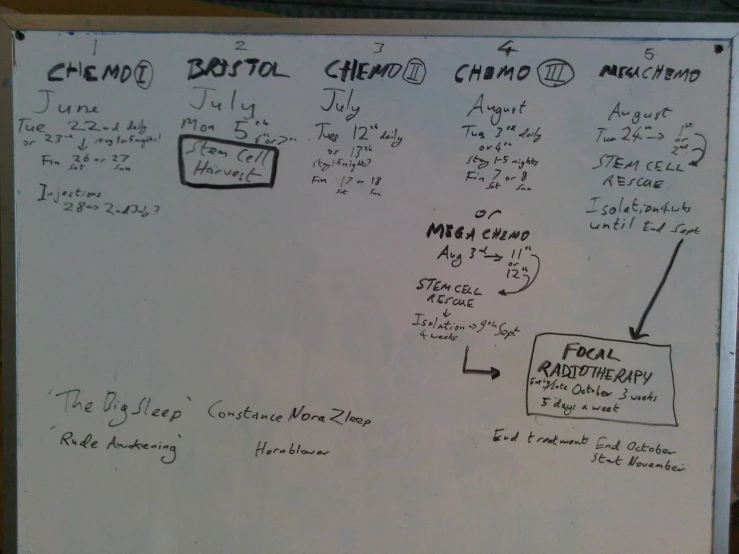 1
CHEMO I
June
Tue 22nd daily
or 23rd
stay 1-5 nights!
Fin 26 or 27
Sat Sun
Injections
28 → 2nd July?
2
BRISTOL
July
Mon 5th
6th or 7th
Stem Cell
Harvest
3
CHEMO II
July
Tues 12th daily
or 13th
stay 1-5 nights?
Fin 17 or 18
Sat Sun
4
CHOMO III
August
Tue 3rd daily
or 4th
stay 1-5 nights
Fin 7 or 8
Sat Sun
or
MEGA CHEMO
Aug 3rd → 11th
or
12th
STEM CELL
RESCUE
Isolation → 9th Sept
4 weeks
5
MEGACHEMO
August
Tue 24th → 1st
or
2nd
STEM CELL
RESCUE
Isolation 4wks
until End Sept
FOCAL
RADIOTHERAPY
Early/late October 3 weeks
5 days a week
End treatment End October
Start November
'The Big Sleep' Constance Nora Zleep
'Rude Awakening' Hornblower